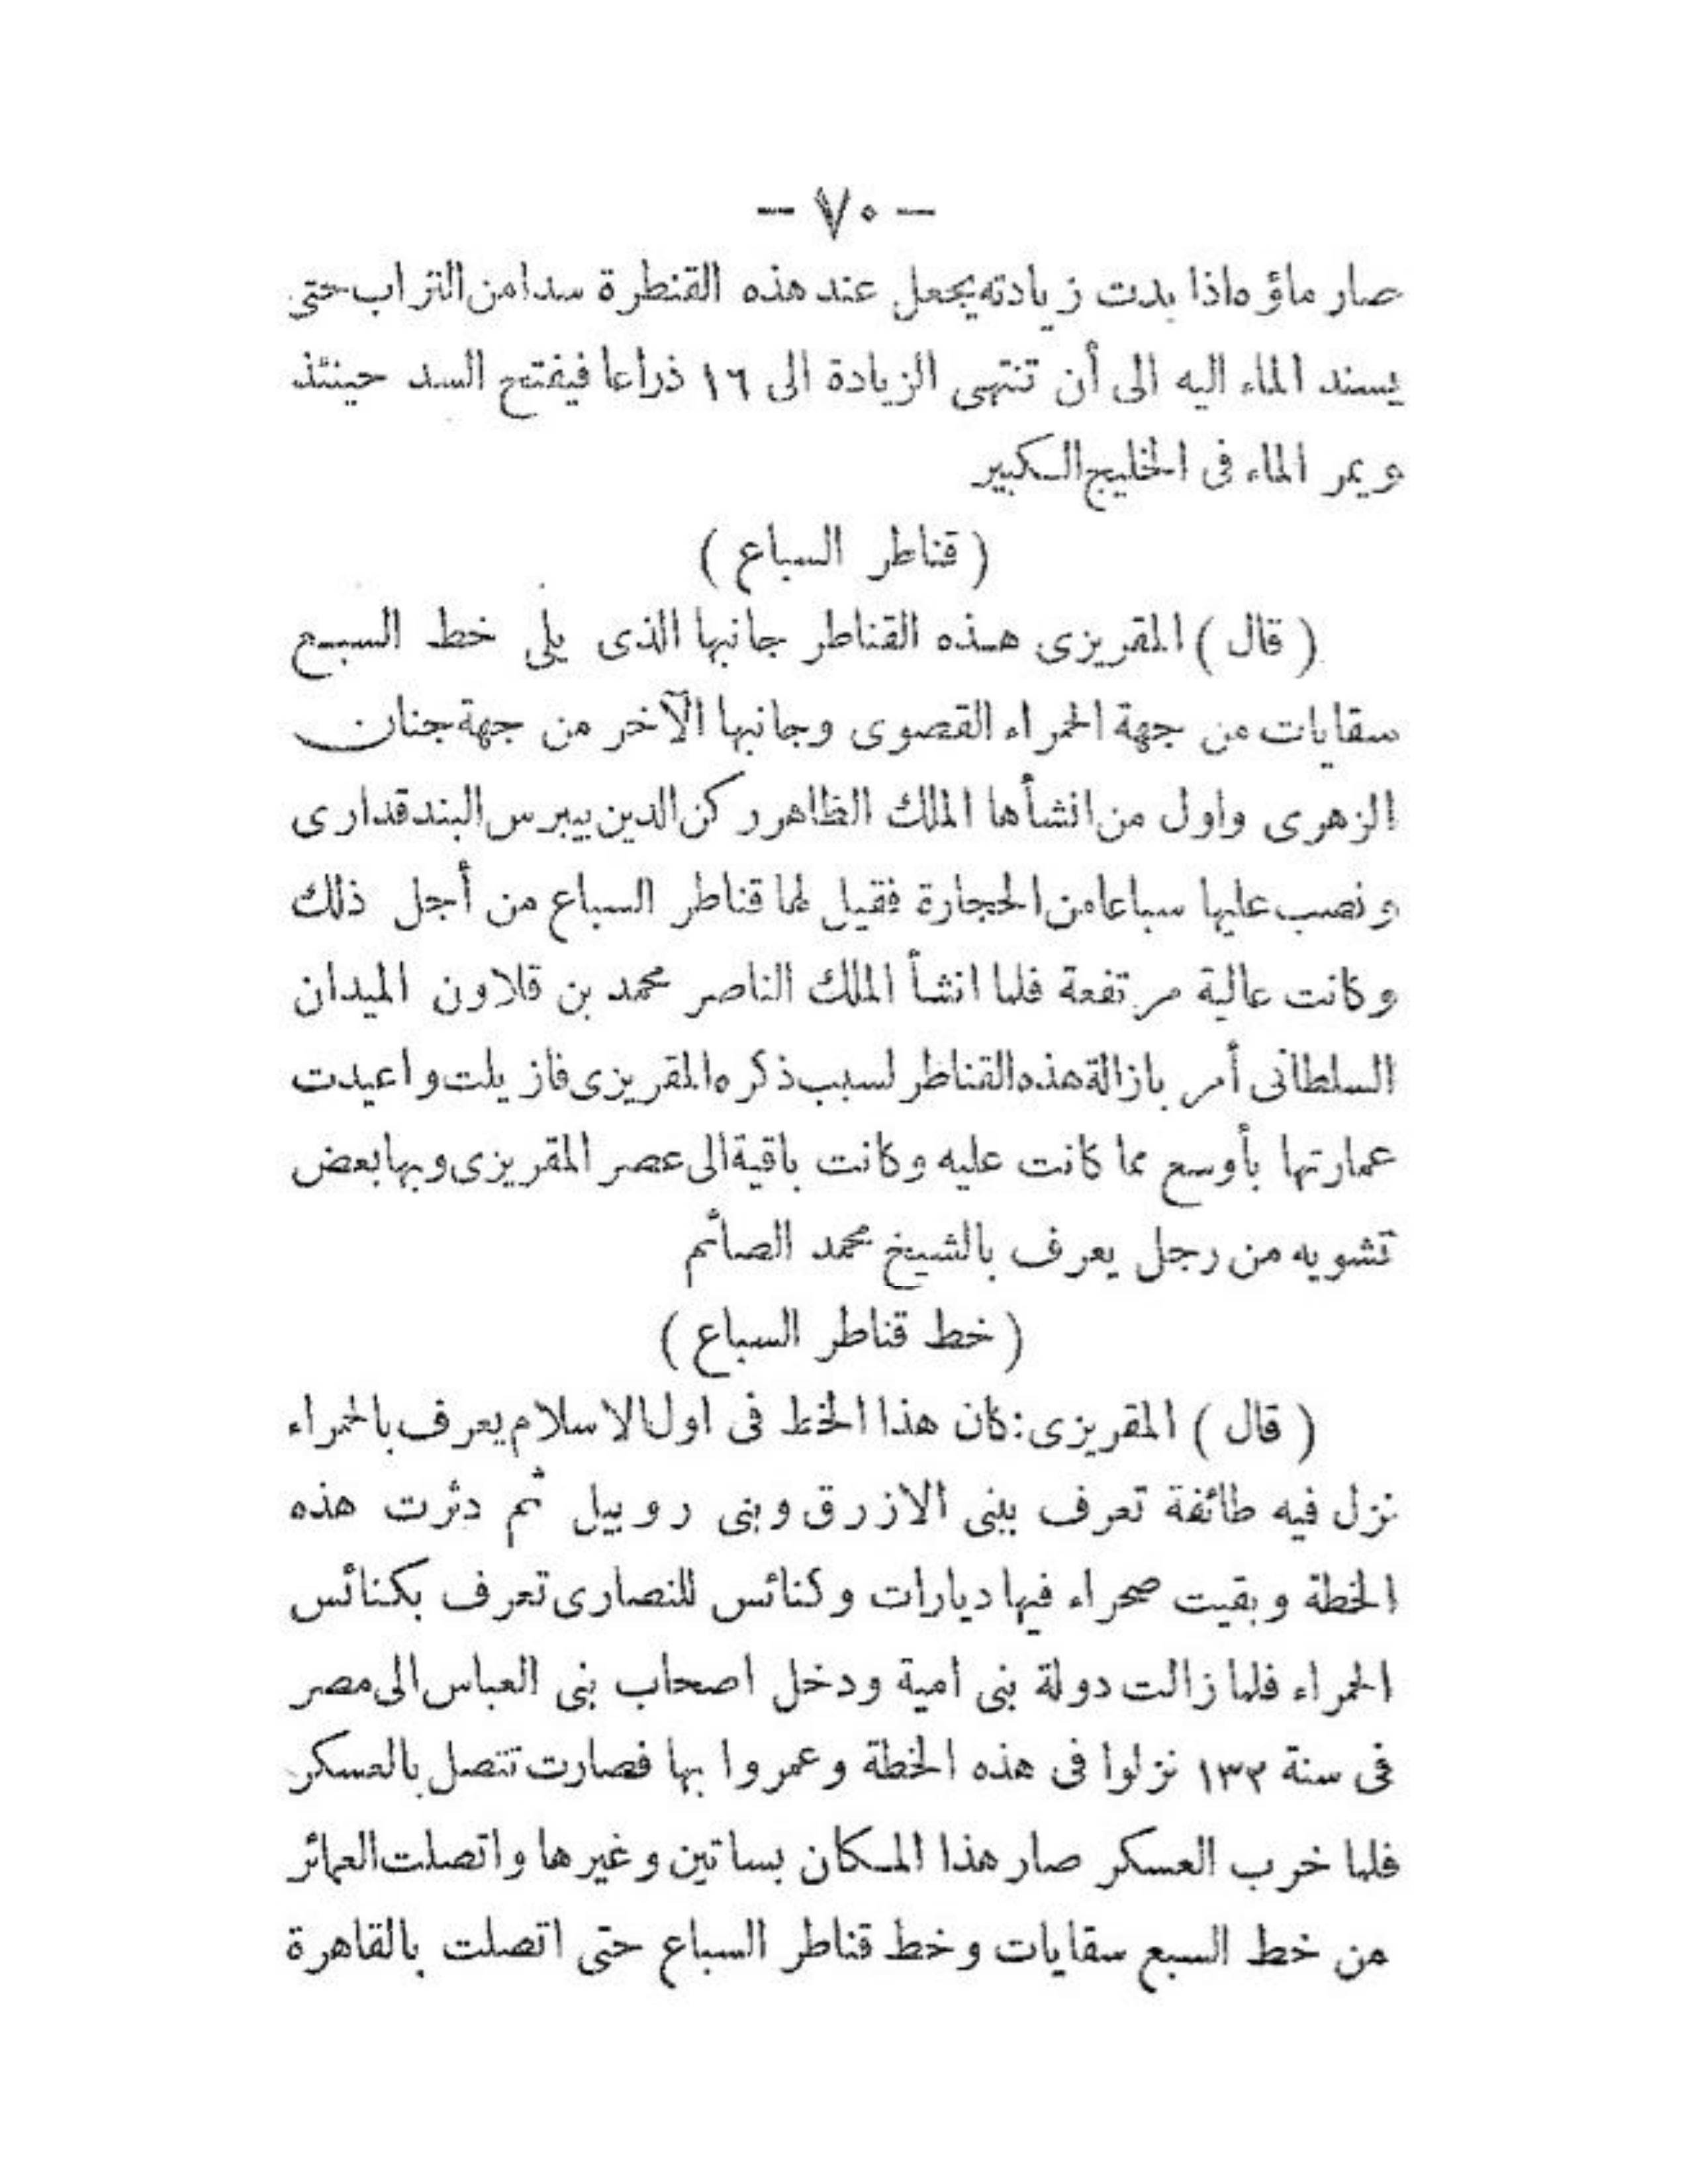 — ٧٠ —
صار ماؤه اذا بدت زيادته يجعل عند هذه القنطرة سدا من التراب حتى
يسند الماء اليه الى أن تنتهى الزيادة الى ١٦ ذراعا فيفتح السد حينئذ
ويمر الماء فى الخليج الكبير
( قناطر السباع )
( قال ) المقريزى هذه القناطر جانبها الذى يلى خط السبع
سقايات من جهة الحمراء القصوى وجانبها الآخر من جهة جنان
الزهرى واول من انشأها الملك الظاهر ركن الدين بيبرس البندقدارى
ونصب عليها سباعا من الحجارة فقيل لها قناطر السباع من أجل ذلك
وكانت عالية مرتفعة فلما انشأ الملك الناصر محمد بن قلاون الميدان
السلطانى أمر بازالة هذه القناطر لسبب ذكره المقريزى فازيلت واعيدت
عمارتها بأوسع مما كانت عليه وكانت باقية الى عصر المقريزى وبها بعض
تشويه من رجل يعرف بالشيخ محمد الصائم
( خط قناطر السباع )
( قال ) المقريزى : كان هذا الخط فى اول الاسلام يعرف بالحمراء
نزل فيه طائفة تعرف ببنى الازرق وبنى روبيل ثم دثرت هذه
الخطة وبقيت صحراء فيها ديارات وكنائس للنصارى تعرف بكنائس
الحمراء فلما زالت دولة بنى امية ودخل اصحاب بنى العباس الى مصر
فى سنة ١٣٢ نزلوا فى هذه الخطة وعمروا بها فصارت تتصل بالعسكر
فلما خرب العسكر صار هذا المكان بساتين وغيرها واتصلت العمائر
من خط السبع سقايات وخط قناطر السباع حتى اتصلت بالقاهرة